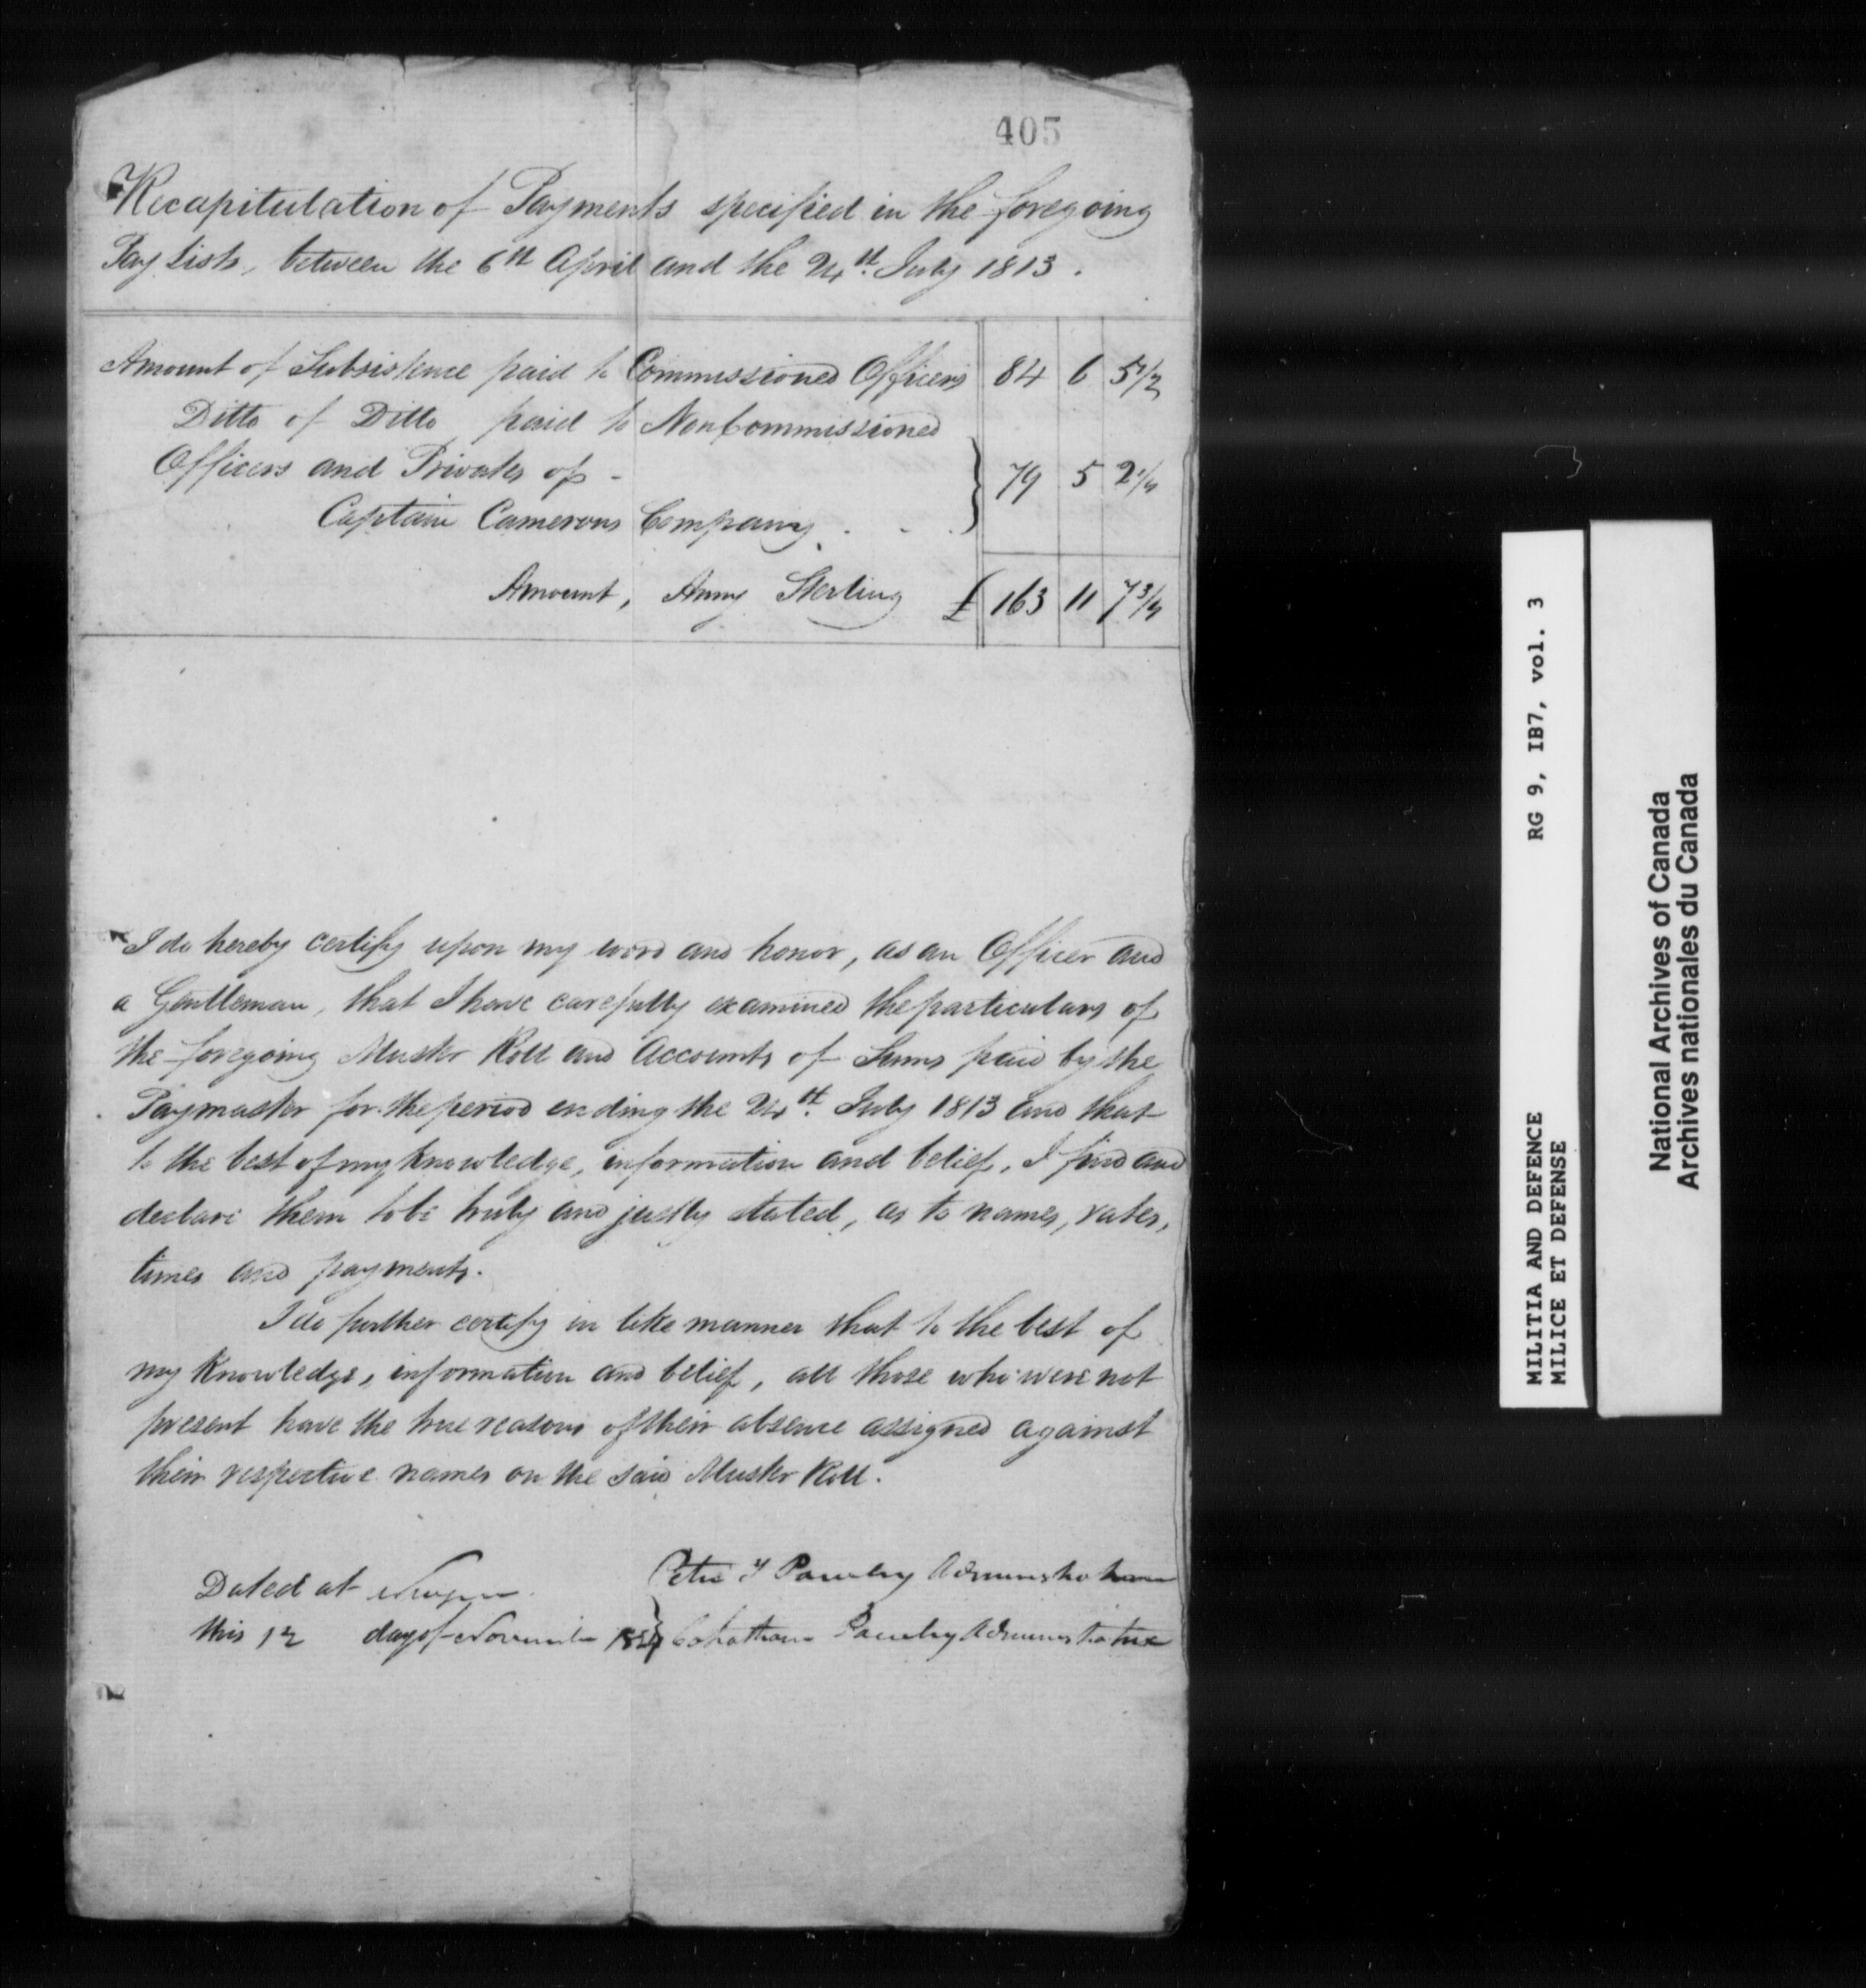 405
Recapitulation of Payments specified in the foregoing
Pay Lists, between the 6th April and the 24th. July 1813.
Amount of Subsistence paid to Commissioned Officers 84 6 5 1/2
Ditto of Ditto paid to Non Commissioned
Officers and Privates of -
Captain Camerons Company . . . } 79 5 2 1/4
Amount, Army Sterling £ 163 11 7 3/4
I do hereby certify upon my word and honor, as an Officer and
a Gentleman, that I have carefully examined the particulars of
the foregoing Muster Roll and Accounts of Sums paid by the
Paymaster for the period ending the 24th. July 1813 and that
to the best of my knowledge, information and belief, I find and
declare them to be truly and justly stated, as to names, rates,
times and payments.
I do further certify in like manner that to the best of
my knowledge, information and belief, all those who were not
present have the true reasons of their absence assigned against
their respective names on the said Muster Roll.
Dated at
this 12 day of November
Administratrix
RG 9, IB7, vol. 3
MILITIA AND DEFENCE
MILICE ET DEFENSE
National Archives of Canada
Archives nationales du Canada